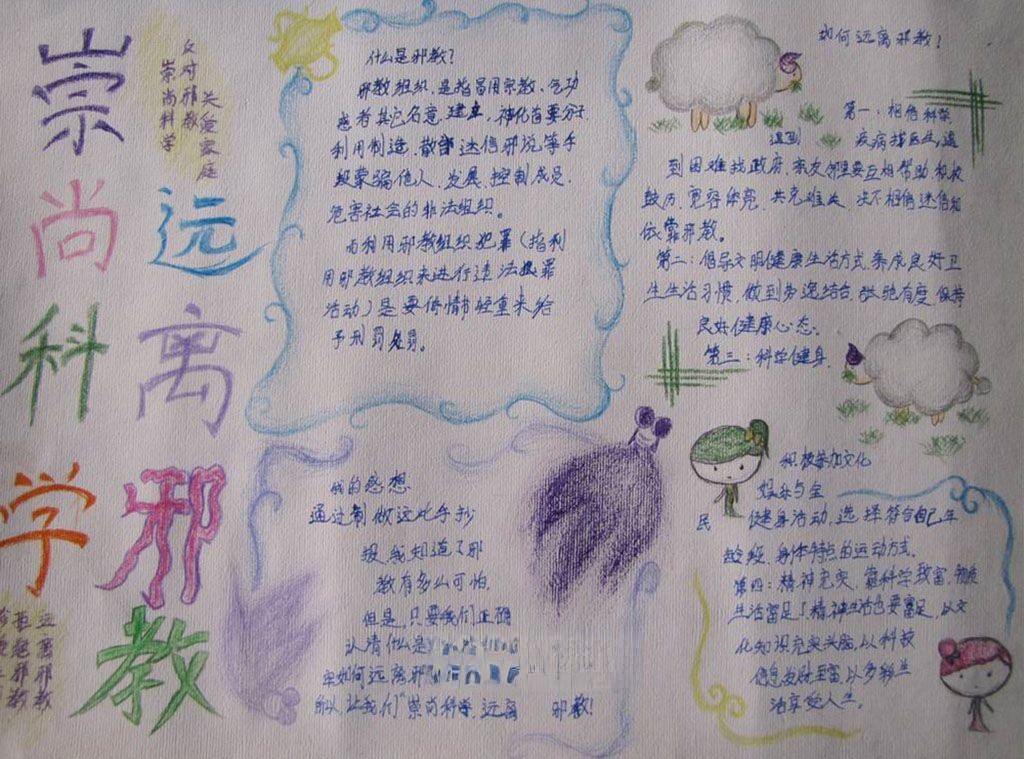 崇尚科学
远离邪教
反对邪教
崇尚科学
关爱家庭
什么是邪教?
邪教组织,是指冒用宗教、气功
或者其它名意,建立,神化首要分子,
利用制造、散部迷信邪说等手
段蒙骗他人,发展、控制成员,
危害社会的非法组织。
而利用邪教组织犯罪(指利
用邪教组织来进行违法犯罪
活动)是要依情节轻重来给
予刑罚处罚。
如何远离邪教!
第一:相信科学
疾病找医生,遇到
到困难找政府,亲友邻里要互相帮助积极
鼓厉,宽容体亮,共克难关,决不相信迷信和
依靠邪教。
第二:倡导文明健康生活方式,养成良好卫
生生活习惯,做到劳逸结合,张弛有度,保持
良好健康心态。
第三:科学健身,
积极参加文化
娱乐与全
民健身活动,选择符合自己年
龄段、身体特点的运动方式。
第四:精神充实,靠科学致富,物质
生活富足了精神生活也要富足,以文
化知识充实头脑,以科技
信息发财至富,以多彩生
活享受人生。
我的感想
通过制做这此手抄
报,我知道了邪
教有多么可怕。
但是,只要我们正确
认清什么是
如何远离邪
所以,让我们“崇尚科学,远离邪教!
远离邪教